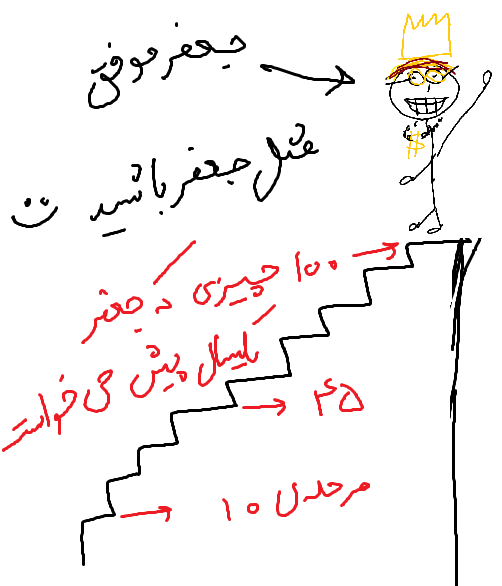 جعفر موفق
مثل جعفر باشید :)
۱۰۰ چیزی که جعفر
یکسال پیش می خواست
۴۵
مرحله ی ۱۰
$